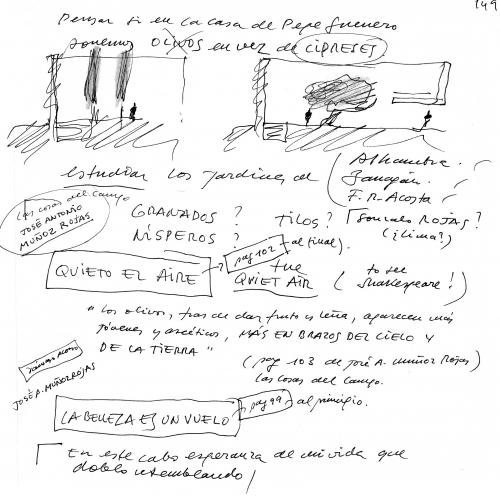 149
Pensar si en la casa de Pepe Guerrero
ponemos OLIVOS en vez de CIPRESES
estudiar los Jardines de
Alhambra.
F. R. Acosta
Las cosas del campo
JOSÉ ANTONIO
MUÑOZ ROJAS
GRANADOS? TILOS? Gonzalo ROJAS?
NÍSPEROS? (¿Lima?)
QUIETO EL AIRE
pag 102 al final).
the
QUIET AIR
(to see
Shakespeare!)
"Los olivos, tras de dar fruto y leña, aparecen más
jóvenes y ascéticos, MÁS EN BRAZOS DEL CIELO Y
DE LA TIERRA"
(pag 103 de José A. Muñoz Rojas)
Las cosas del campo.
DÁMASO ALONSO
JOSÉ A. MUÑOZ ROJAS
LA BELLEZA ES UN VUELO
pag 99 al principio.
En este cabo esperanza de mi vida que
doblo temblando/